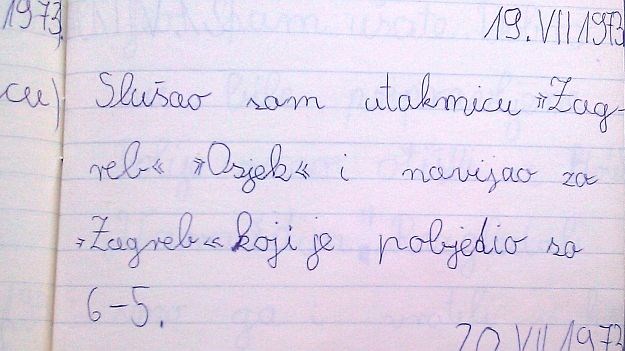 1973.
19. VII 1973
cu) Slušao sam utakmicu »Zag-
reb« »Osjek« i navijao za
»Zagreb« koji je pobjedio sa
6-5.
20 VII 1973